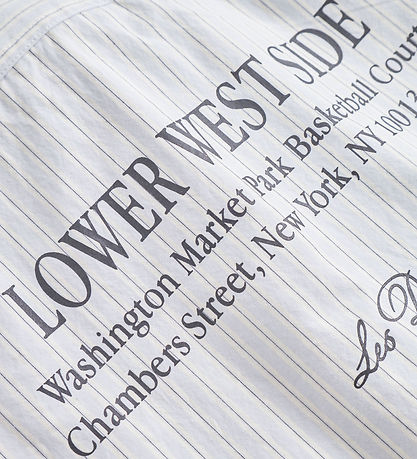 LOWER WEST SIDE
Washington Market Park Basketball Court
Chambers Street, New York, NY 10013
Les